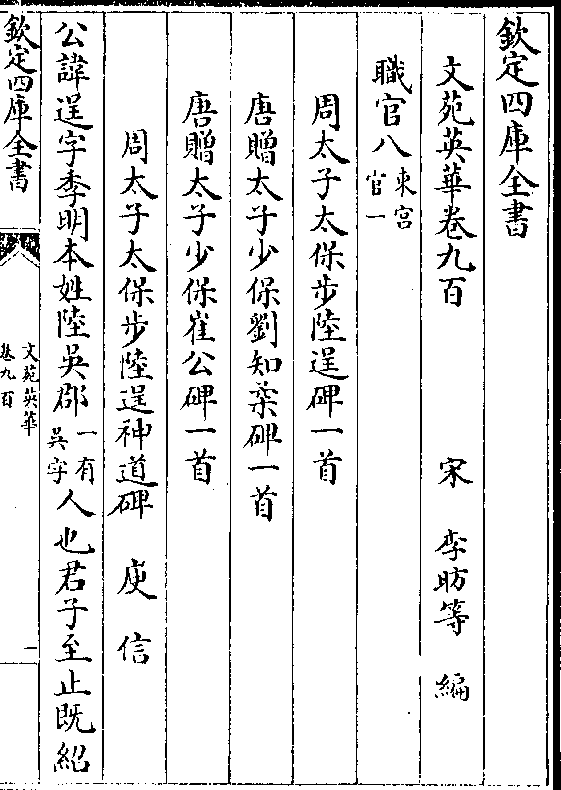 欽定四庫全書
文苑英華卷九百
宋 李昉等 編
職官八 東宮官一
周太子太保步陸逞碑一首
唐贈太子少保劉知柔碑一首
唐贈太子少保崔公碑一首
周太子太保步陸逞神道碑 庾信
公諱逞字季明本姓陸吳郡 一有吳字 人也君子至止既紹
欽定四庫全書
文苑英華
卷九百
一